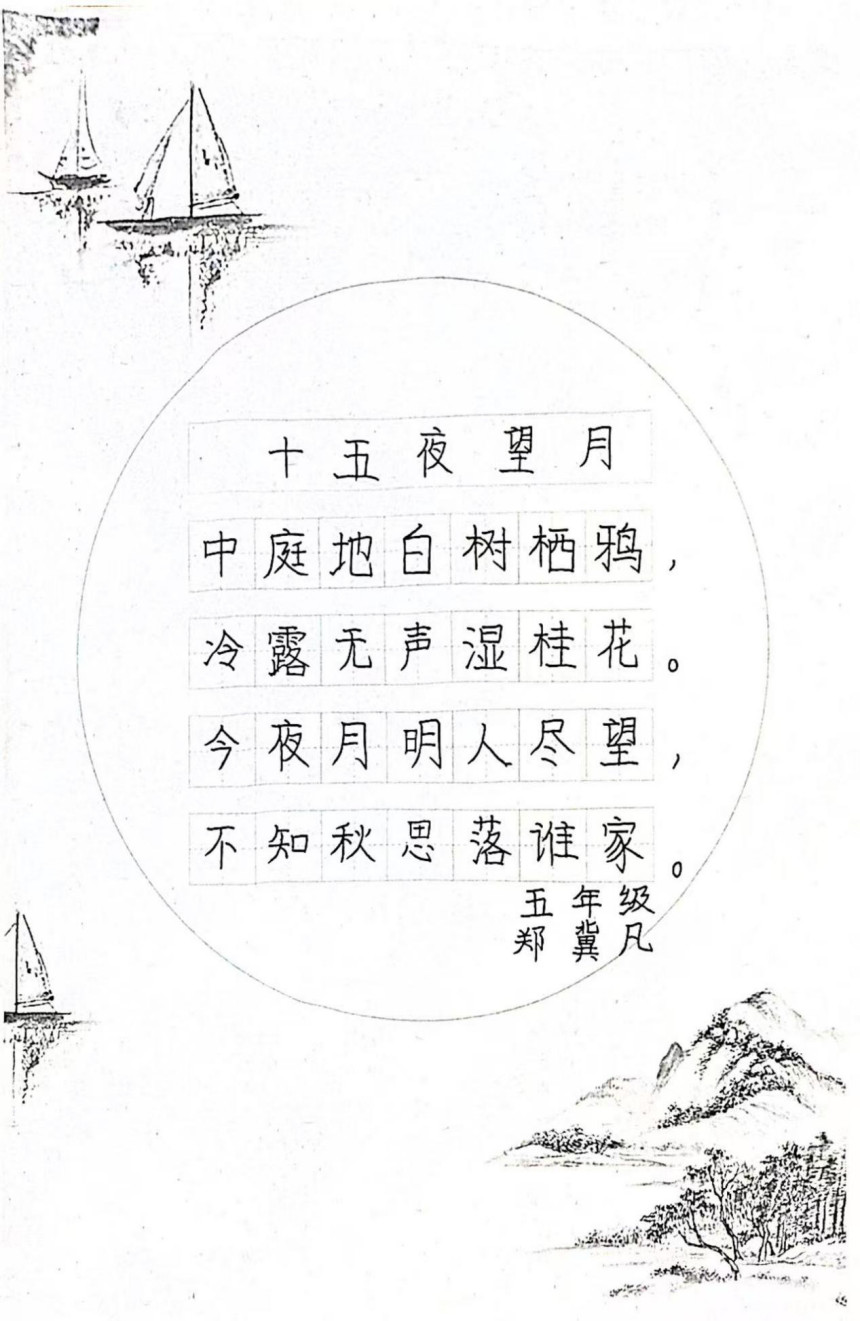 十五夜望月
中庭地白树栖鸦，
冷露无声湿桂花。
今夜月明人尽望，
不知秋思落谁家。
五年级
郑冀凡